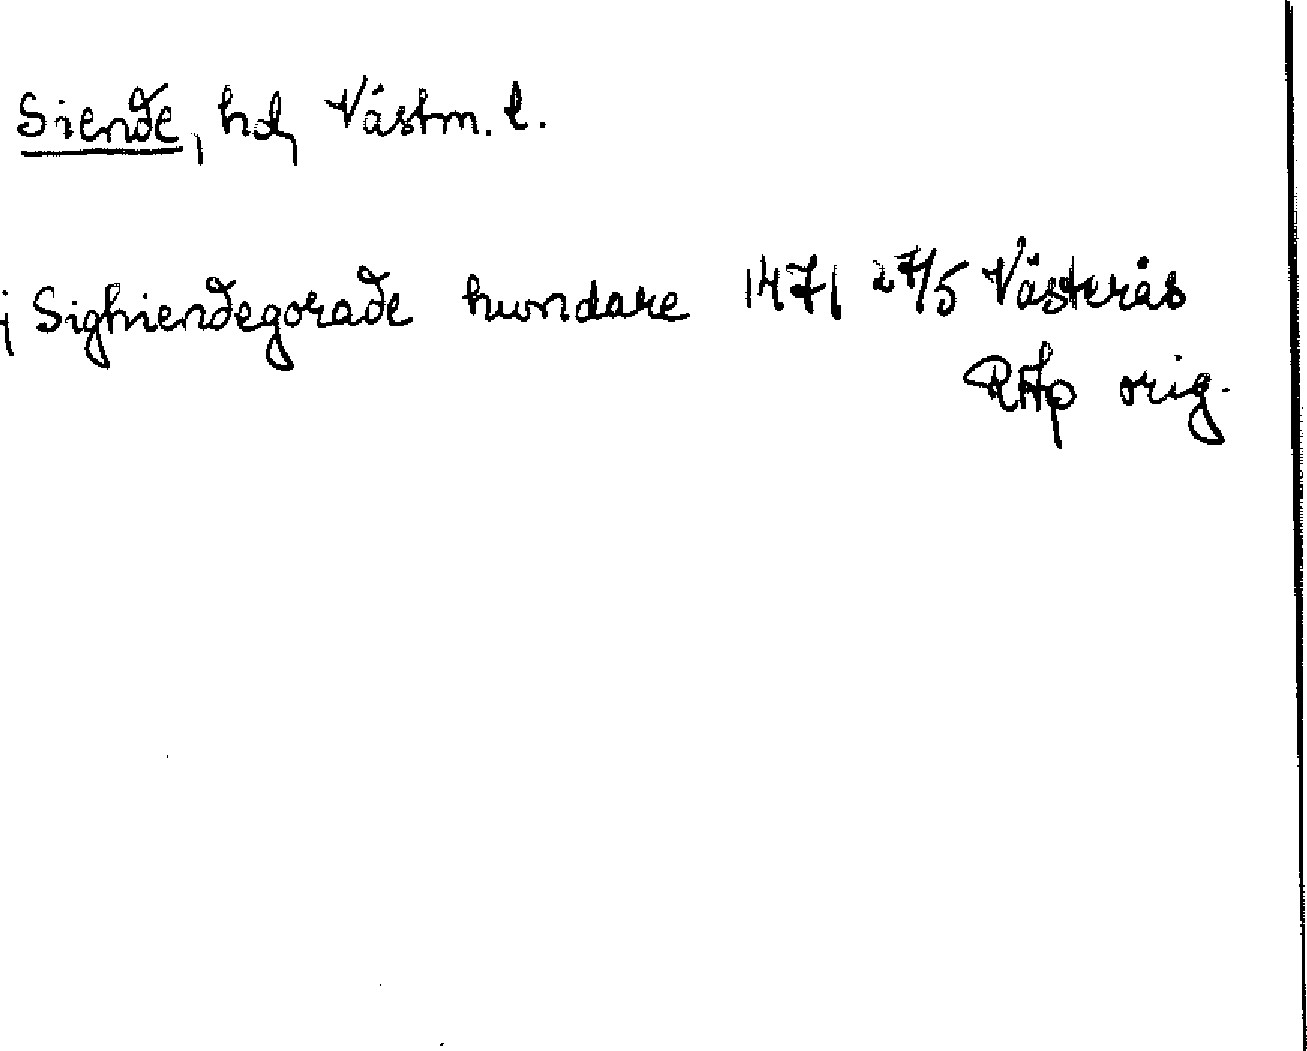 Siende, hd, Västm. l.
j Sighiendegorade hundare 1471 27/5 Västerås
RAp orig.